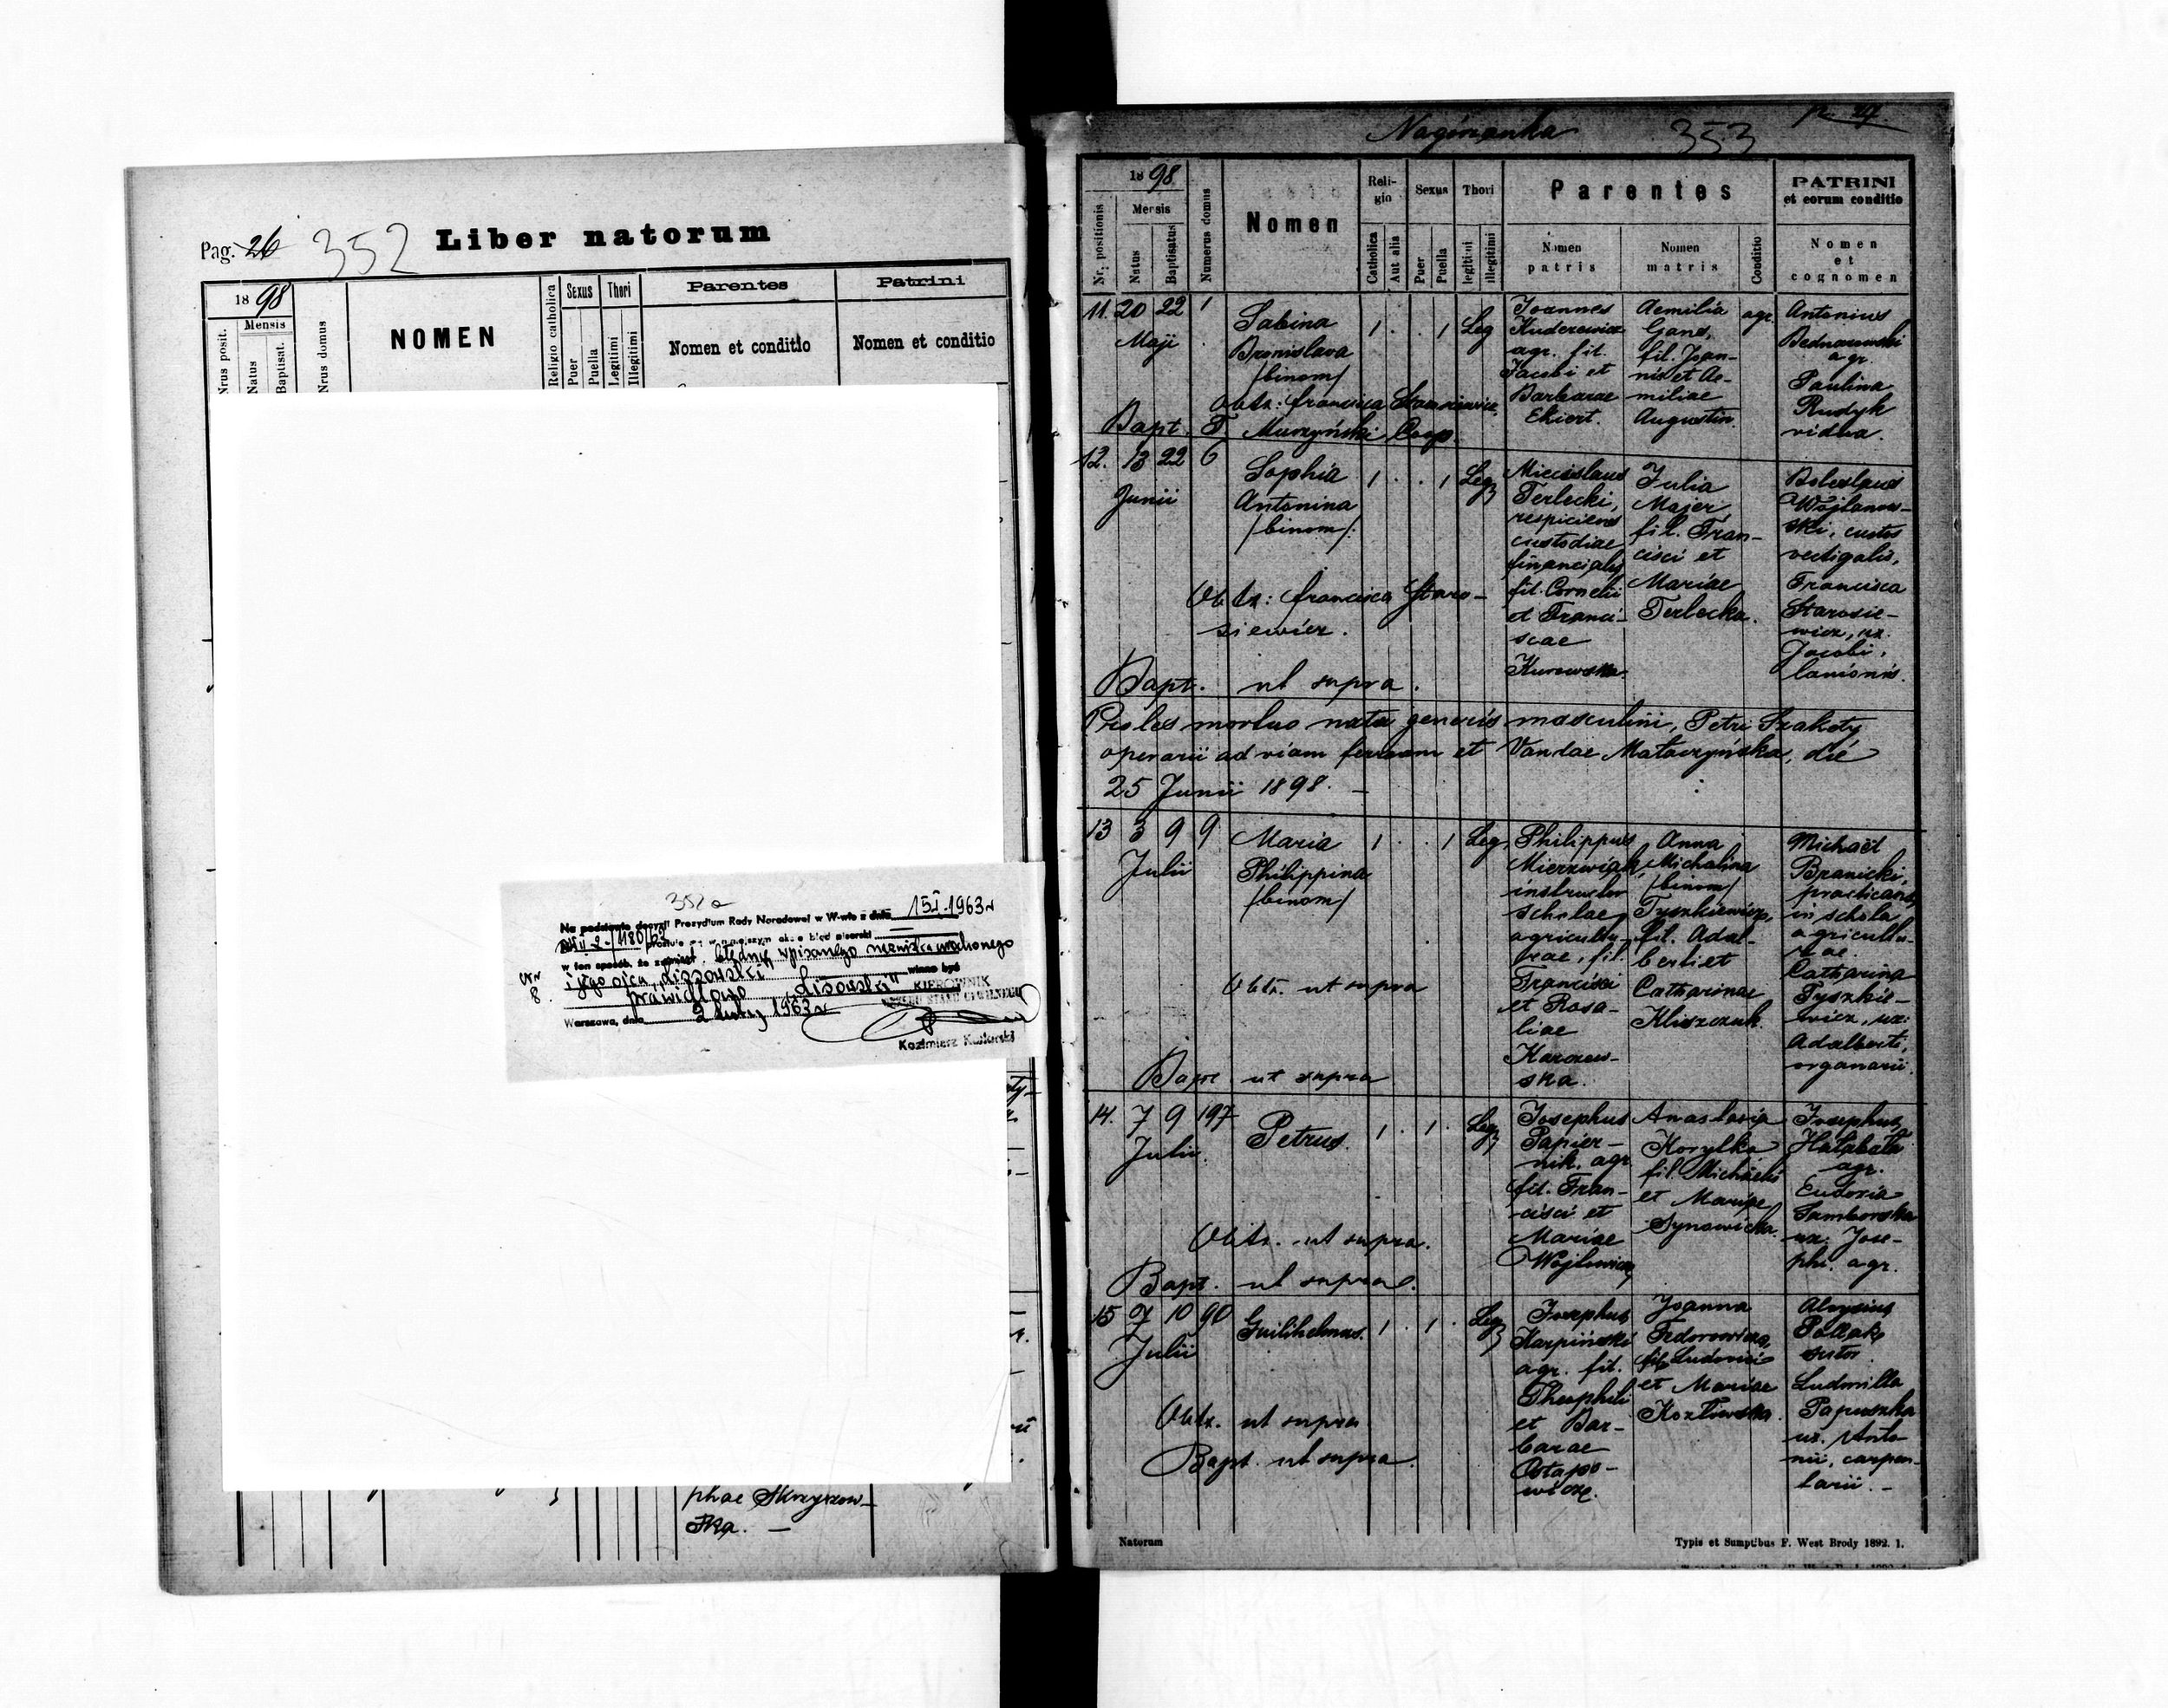 Pag. 26 352 Liber natorum
1898
Mensis
Nrus posit.
Natus
Baptisat.
Nrus domus
NOMEN
Religio catholica
Sexus
Puer
Puella
Thori
Legitimi
Illegitimi
Parentes
Nomen et conditio
Patrini
Nomen et conditio
352a
Na podstawie decyzji Prezydium Rady Narodowej w W-wie z dnia 15.I.1963 r
w ten sposób, że zamiast błędnie wpisanego nazwiska
i jego ojca "Lissowski" winno być
prawidłowo "Lisowski" KIEROWNIK
URZĘDU STANU CYWILNEGO
Warszawa, dnia 2 1963 r
Kazimierz
phae Skrzyszow-
ska. —
353
1898
Mensis
Nr. positionis
Natus
Baptisatus
Numerus domus
Nomen
Religio
Catholica
Aut alia
Sexus
Puer
Puella
Thori
legitimi
illegitimi
Parentes
Nomen
patris
Nomen
matris
Conditio
PATRINI
et eorum conditio
Nomen
et
cognomen
11. 20 22 1
Maji
Sabina
Bronislava
/binom/
1 . . 1 Leg
Joannes
Kuderewicz
agr. fil.
Jacobi et
Barbarae
Ekiert.
Aemilia
Gans,
fil. Joan-
nis et Ae-
miliae
Augustin.
agr.
Antonius
Bednarowski
agr.
Paulina
Rudyk
vidua.
Obstr: Francisca
Bapt. F. Murzyński Coop.
12. 13 22 6
Junii
Sophia
Antonina
/binom/.
1 . . 1 Leg
Miecislaus
Terlecki,
respiciens
custodiae
financialis
fil. Cornelii
et Franci-
scae
Kurowska.
Julia
Majer
fil. Fran-
cisci et
Mariae
Terlecka.
Boleslaus
custos
vectigalis,
Francisca
Starosie-
wicz, ux.
Jacobi,
lanionis.
Obstr: Francisca Staro-
siewicz.
Bapt. ut supra.
Proles mortuo nata generis masculini, Petri
operarii ad viam ferream et Vandae Mataczyńska, die
25 Junii 1898. —
13 3 9 9
Julii
Maria
Philippina
/binom/
1 . . 1 Leg.
Philippus
instructor
scholae
agricultu-
rae, fil.
Francisci
et Rosa-
liae
Karczew-
ska.
Anna
Michalina
/binom/
Tyszkiewicz,
fil. Adal-
berti et
Catharinae
Kliszczuk.
Michaël
Branicki,
practicans
in schola
agricultu-
rae.
Catharina
Tyszkie-
wicz, ux:
Adalberti,
organarii.
Obstr. ut supra
Bapt. ut supra
14. 7 9 197
Julii.
Petrus.
1 . 1 . Leg
Josephus
Papier-
nik, agr
fil. Fran-
cisci et
Mariae
Wojtowicz
Anastasia
Korylko
fil. Michaëlis
et Mariae
Synowicka.
Josephus
agr.
Eudoxia
Samborska
ux. Jose-
phi. agr.
Obstr. ut supra.
Bapt. ut supra.
15 9 10 90
Julii
Guilihelmus.
1 . 1 . Leg
Josephus
Karpiński
agr. fil.
Theophili
et Bar-
barae
Ostapo-
wicz.
Joanna
Fedorowicz,
fil. Ludovici
et Mariae
Kozłowska.
Aloysius
Pollak
sutor.
Ludovilla
Papuszka
ux. Anto-
nii, carpen-
tarii. -
Obstr. ut supra
Bapt. ut supra.
Natorum
Typis et Sumptibus F. West Brody 1892. 1.